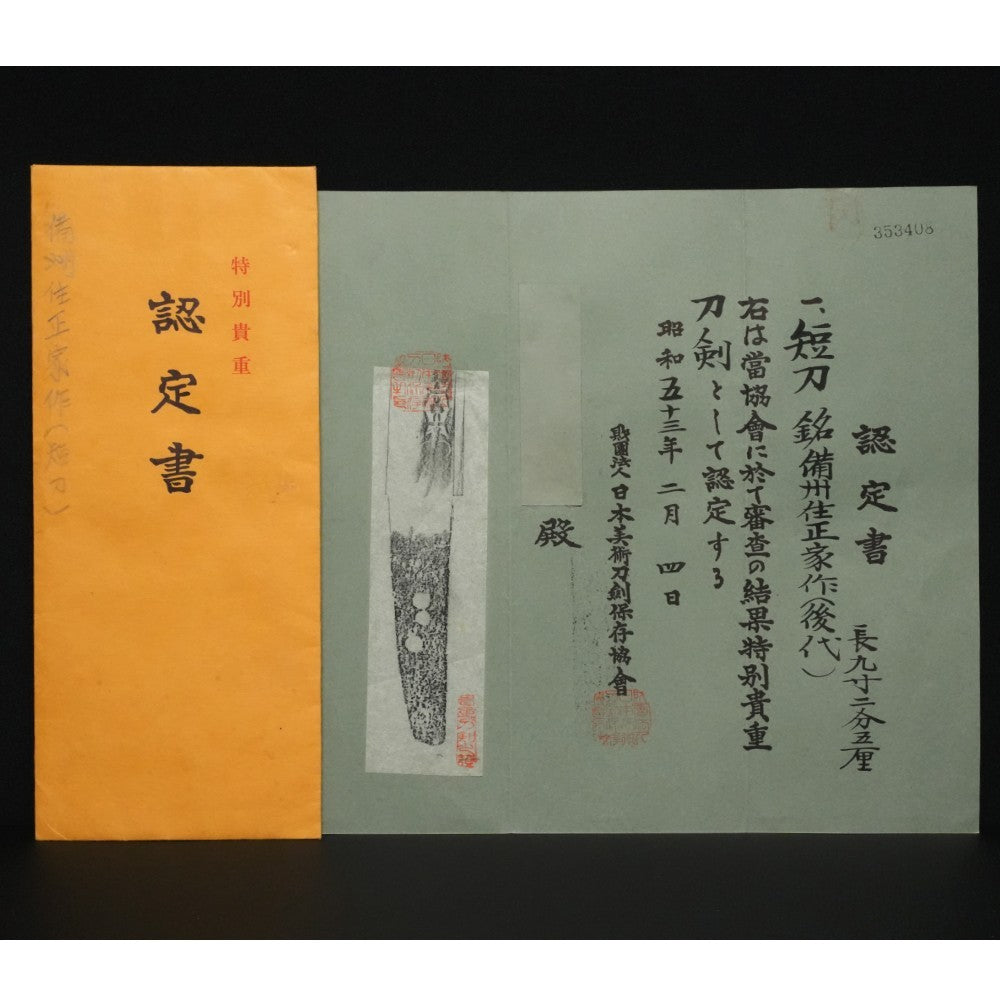 特別貴重
認定書
備州住正家作(短刀)
353408
認定書
長九寸二分五厘
一、短刀 銘備州住正家作(後代)
右は當協會に於て審査の結果特別貴重
刀剣として認定する
昭和五十三年 二月 四日
財團法人日本美術刀剣保存協會
殿